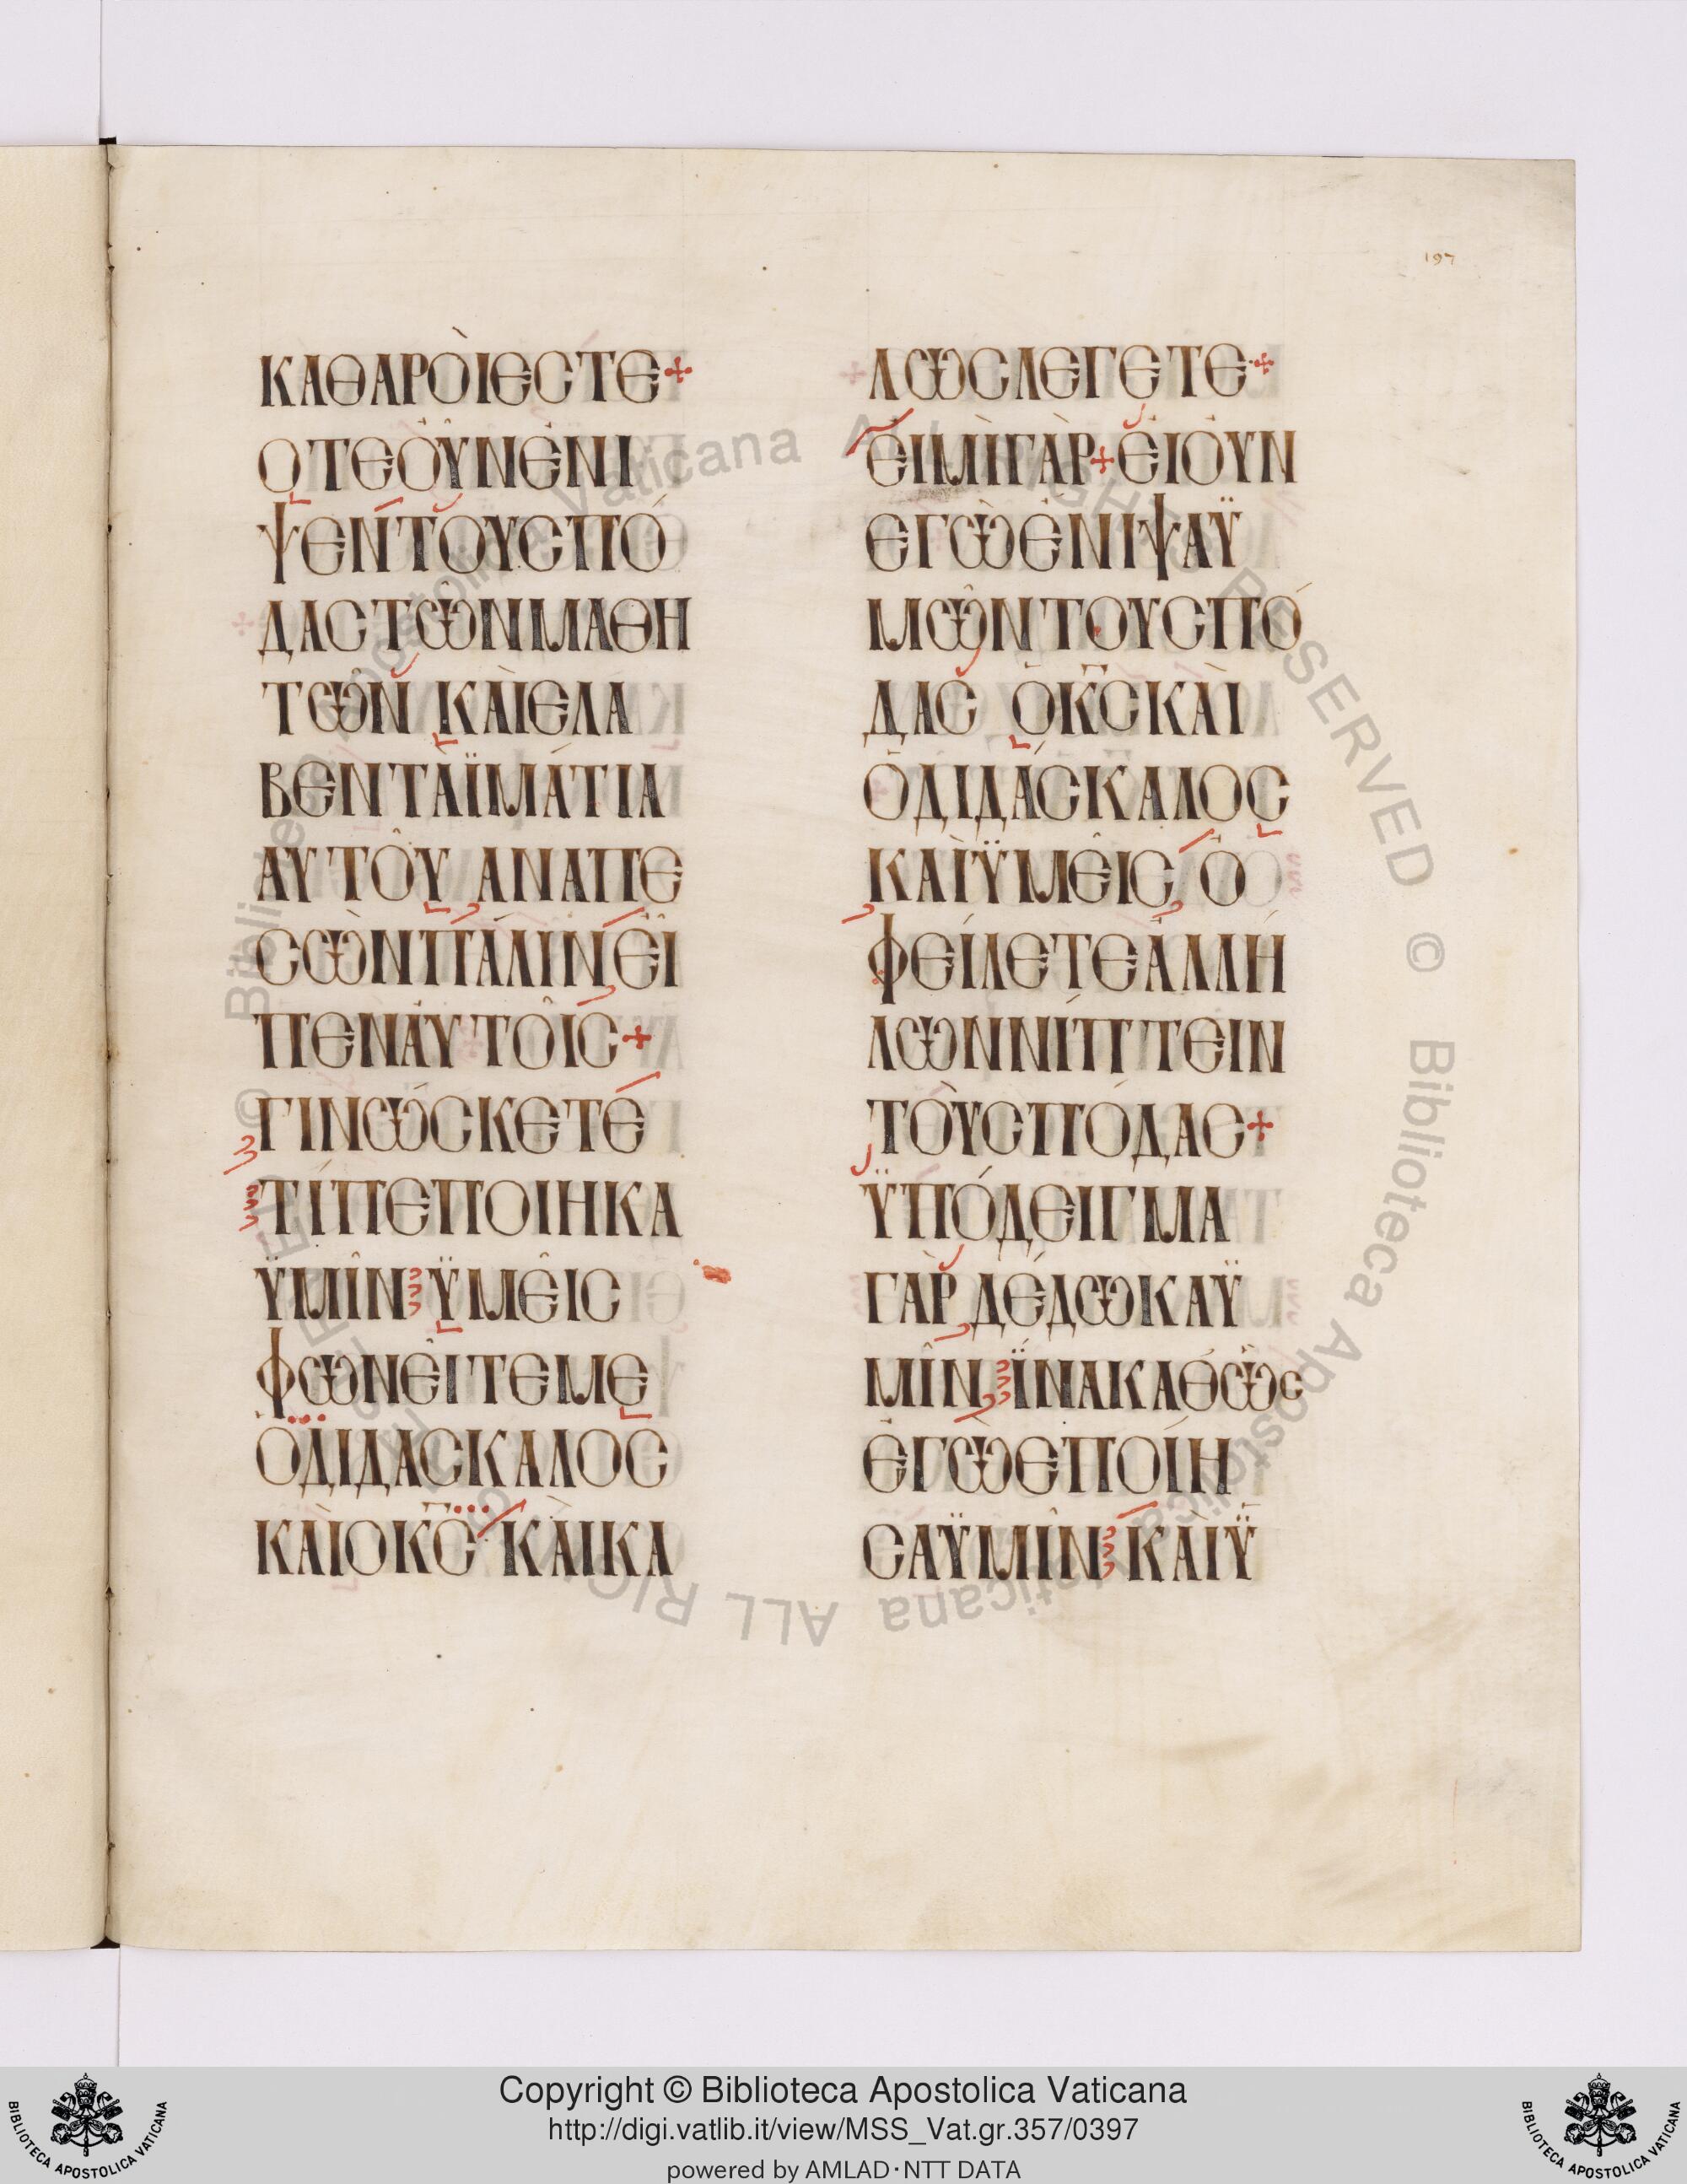 197
ΚΑΘΑΡΟῚΕϹΤΕ+
ΟΤΕΟΥ̓͂ΝἘΝΙ
ΨΕΝΤΟΥϹΠΌ
ΔΑϹΤΩ͂ΝΜΑΘΗ
ΤΩ͂Ν ΚΑῚΕΛΑ
ΒΕΝΤᾺΪΜΆΤΙΑ
ΑΥΤΟΥ͂ ΑΝΑΠΕ
ϹῺΝΠΆΛΙΝΕΙ͂
ΠΕΝΑΥ̓ΤΟΙ͂Ϲ+
ΓΙΝΏϹΚΕΤΈ
ΤΊΠΕΠΟΙΗΚΑ
ΫΜΙ͂Ν ΫΜΕΙ͂Ϲ
ΦΩΝΕΙ͂ΤΕΜΕ
ὉΔΙΔΑϹΚΑΛΟϹ
ΚΑῚΟΚ̅Ϲ̅ ΚΑῚΚΑ
ΛΩϹΛΕΓΕΤΕ+
ΕΙΜῚΓᾺΡ+ΕΙΟΥ̓͂Ν
ΕΓῺἘΝΙΨΑΫ
ΜΩ͂ΝΤΟΥϹΠΌ
ΔΑϹ ὉΚ̅Ϲ̅ΚΑῚ
ὉΔΙΔΆϹΚΑΛΟϹ
ΚΑῚΫΜΕΙ͂Ϲ Ο
ΦΕΊΛΕΤΕἈΛΛΉ
ΛΩΝΝΊΠΤΕΙΝ
ΤΟῪϹΠΟΔΑϹ+
ΫΠΌΔΕΙΓΜΑ
ΓᾺΡ ΔΈΔΩΚΑΫ
ΜΙ͂Ν ΪΝΑΚΑΘῺϹ
ἘΓῺΕΠΟΊΗ
ϹΑΫΜΙ͂Ν ΚΑῚΫ
© Biblioteca Apostolica Vaticana ALL RIGHTS RESERVED © Biblioteca Apostolica Vaticana ALL RIGHTS RESERVED
Copyright © Biblioteca Apostolica Vaticana
http://digi.vatlib.it/view/MSS_Vat.gr.357/0397
powered by AMLAD·NTT DATA
BIBLIOTECA APOSTOLICA VATICANA
BIBLIOTECA APOSTOLICA VATICANA